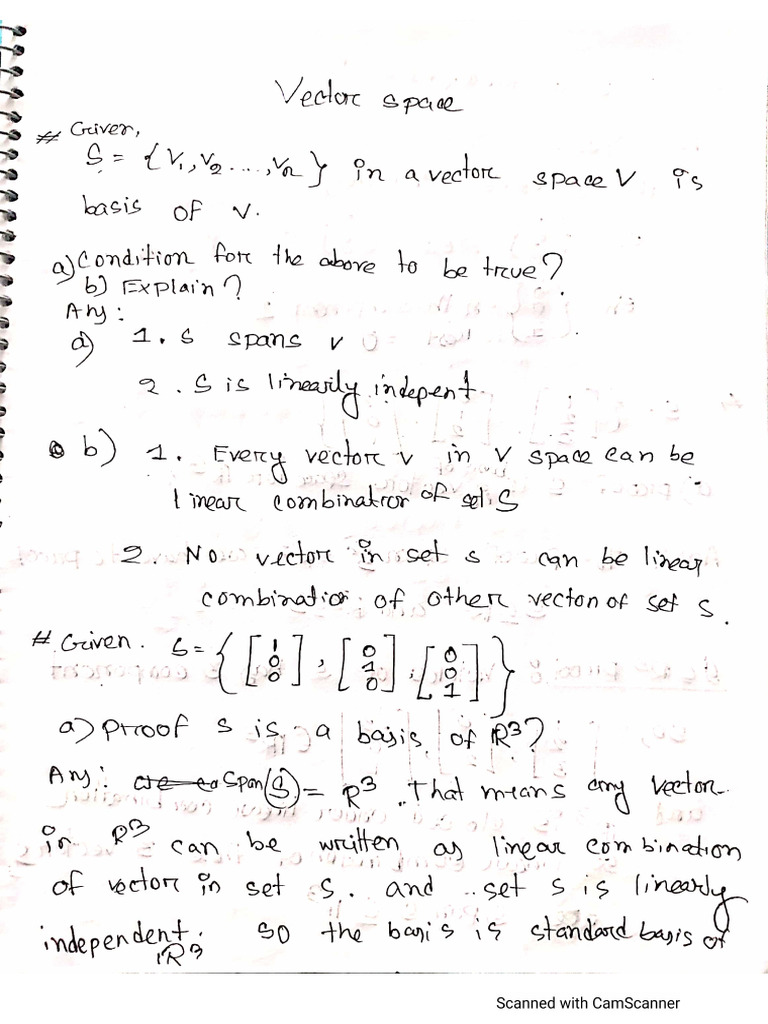 Vector space
# Given,
S = {V1, V2 ...., Vn} in a vector space V is
basis of V.
a) Condition for the above to be true?
b) Explain?
Ans:
a) 1. S spans V
2. S is linearily indepent.
b) 1. Every vector v in V space can be
linear combination of set S
2. No vector in set S can be linear
combination of other vector of set S.
# Given. S = { [1 0 0], [0 1 0], [0 0 1] }
a) proof S is a basis of R³?
Ans: Span(S) = R³. That means any vector
in R³ can be written as linear combination
of vector in set S. and set S is linearly
independent. so the basis is standard basis of
R³
Scanned with CamScanner